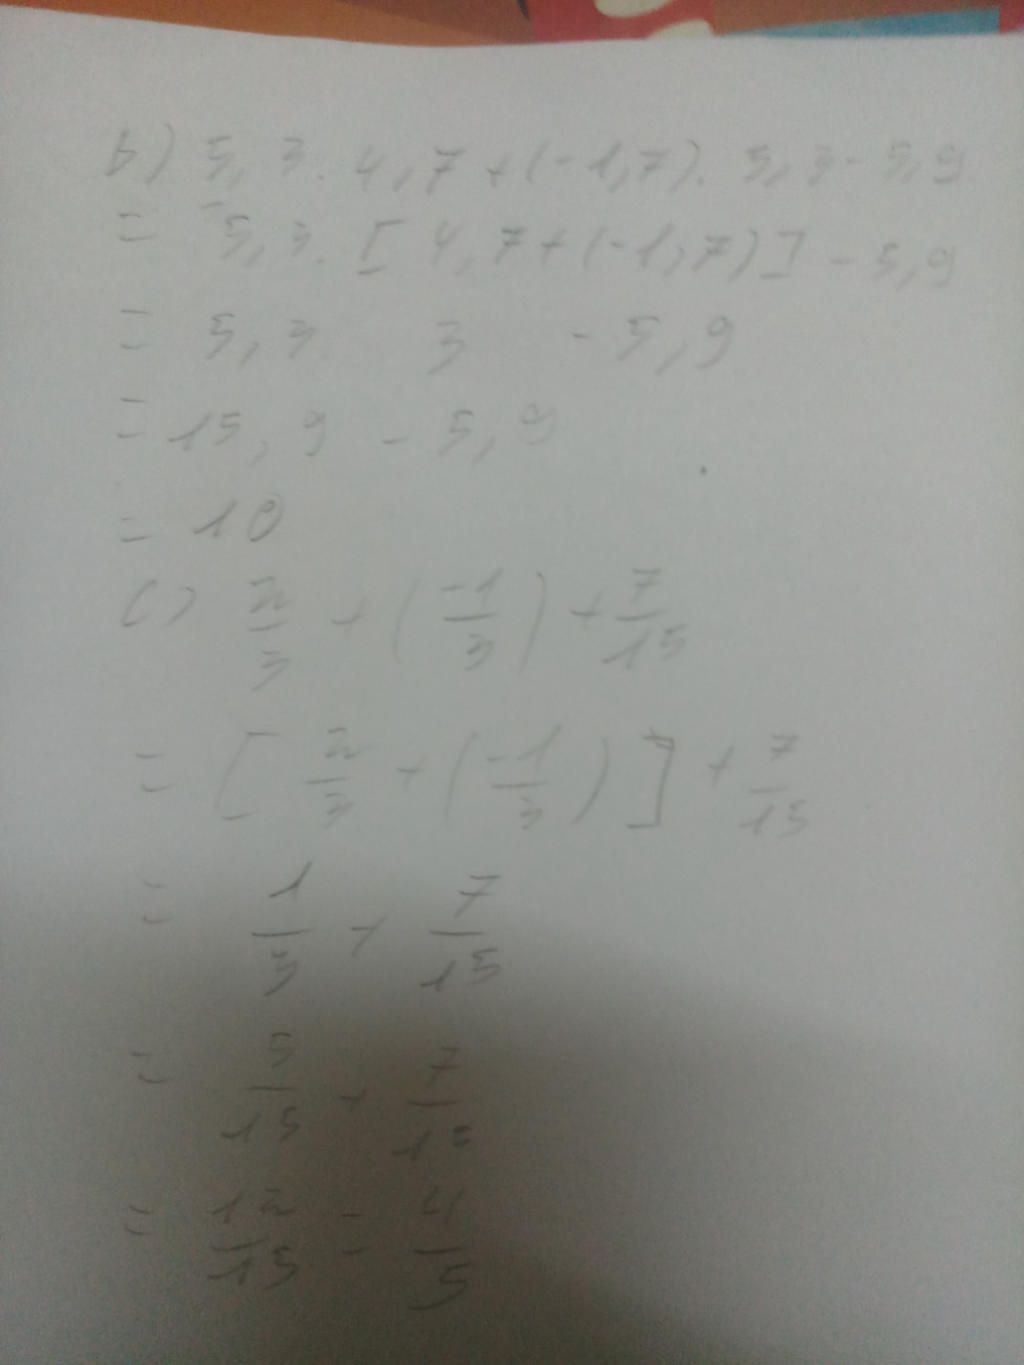 b) 5,3. 4,7 + (-1,7). 5,3 - 5,9
= 5,3. [4,7 + (-1,7)] - 5,9
= 5,3. 3 - 5,9
= 15,9 - 5,9
= 10
c) 2/3 + (-1/3) + 7/15
= [2/3 + (-1/3)] + 7/15
= 1/3 + 7/15
= 5/15 + 7/15
= 12/15 = 4/5